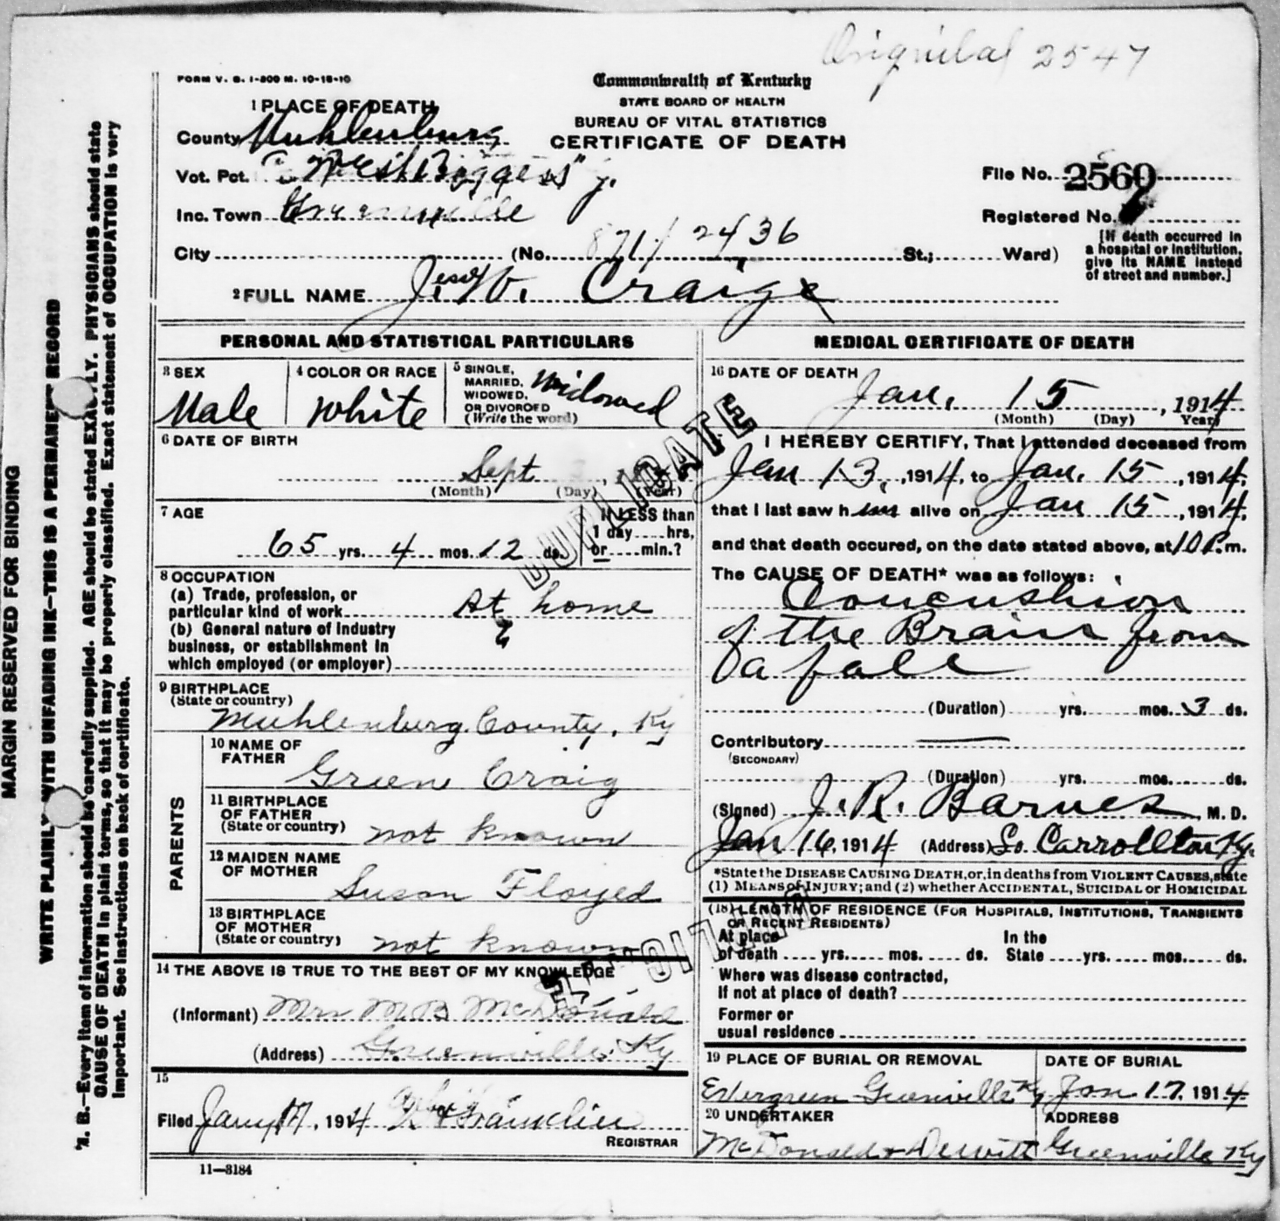 Original 2547
FORM V. S. 1-200 M. 10-18-10
Commonwealth of Kentucky
STATE BOARD OF HEALTH
BUREAU OF VITAL STATISTICS
CERTIFICATE OF DEATH
1 PLACE OF DEATH
County Muhlenburg
Vot. Pct. West
Inc. Town Greenville
City (No. 871/2436 St.; Ward)
File No. 2560
Registered No.
[If death occurred in
a hospital or institution,
give its NAME instead
of street and number.]
2 FULL NAME J. W. Craige
PERSONAL AND STATISTICAL PARTICULARS
3 SEX
Male
4 COLOR OR RACE
White
5 SINGLE,
MARRIED,
WIDOWED,
OR DIVORCED
(Write the word)
Widowed
6 DATE OF BIRTH
Sept
(Month) (Day) (Year)
7 AGE
65 yrs. 4 mos. 12 ds.
If LESS than
1 day....hrs,
or....min.?
8 OCCUPATION
(a) Trade, profession, or
particular kind of work At home
(b) General nature of industry
business, or establishment in
which employed (or employer)
9 BIRTHPLACE
(State or country)
Muhlenberg County, Ky
PARENTS
10 NAME OF
FATHER
Green Craig
11 BIRTHPLACE
OF FATHER
(State or country) not known
12 MAIDEN NAME
OF MOTHER
Susan Floyed
13 BIRTHPLACE
OF MOTHER
(State or country) not known
14 THE ABOVE IS TRUE TO THE BEST OF MY KNOWLEDGE
(Informant) Mrs M B McDonald
(Address) Greenville, Ky
15
Filed Jany 17, 1914
REGISTRAR
11—3184
MEDICAL CERTIFICATE OF DEATH
16 DATE OF DEATH
Jan. 15, 1914
(Month) (Day) Year)
I HEREBY CERTIFY, That I attended deceased from
Jan 13, 1914, to Jan. 15, 1914,
that I last saw him alive on Jan 15, 1914,
and that death occured, on the date stated above, at 10 P.m.
The CAUSE OF DEATH* was as follows:
Concushion
of the Brain from
a fall
(Duration) yrs. mos. 3 ds.
Contributory
(SECONDARY)
(Duration) yrs. mos. ds.
(Signed) J. R. Barnes, M. D.
Jan 16, 1914 (Address) So. Carrollton Ky.
*State the DISEASE CAUSING DEATH, or, in deaths from VIOLENT CAUSES, state
(1) MEANS of INJURY; and (2) whether ACCIDENTAL, SUICIDAL or HOMICIDAL
(18) LENGTH OF RESIDENCE (FOR HOSPITALS, INSTITUTIONS, TRANSIENTS
OR RECENT RESIDENTS)
At place In the
of death .... yrs. .... mos. .... ds. State .... yrs. .... mos. .... ds.
Where was disease contracted,
If not at place of death?
Former or
usual residence
19 PLACE OF BURIAL OR REMOVAL
Evergreen Greenville Ky
DATE OF BURIAL
Jan 17, 1914
20 UNDERTAKER
McDonald & Dewitt
ADDRESS
Greenville Ky
DUPLICATE
MARGIN RESERVED FOR BINDING
WRITE PLAINLY WITH UNFADING INK—THIS IS A PERMANENT RECORD
N. B.—Every item of information should be carefully supplied. AGE should be stated EXACTLY. PHYSICIANS should state
CAUSE OF DEATH in plain terms, so that it may be properly classified. Exact statement of OCCUPATION is very
important. See instructions on back of certificate.